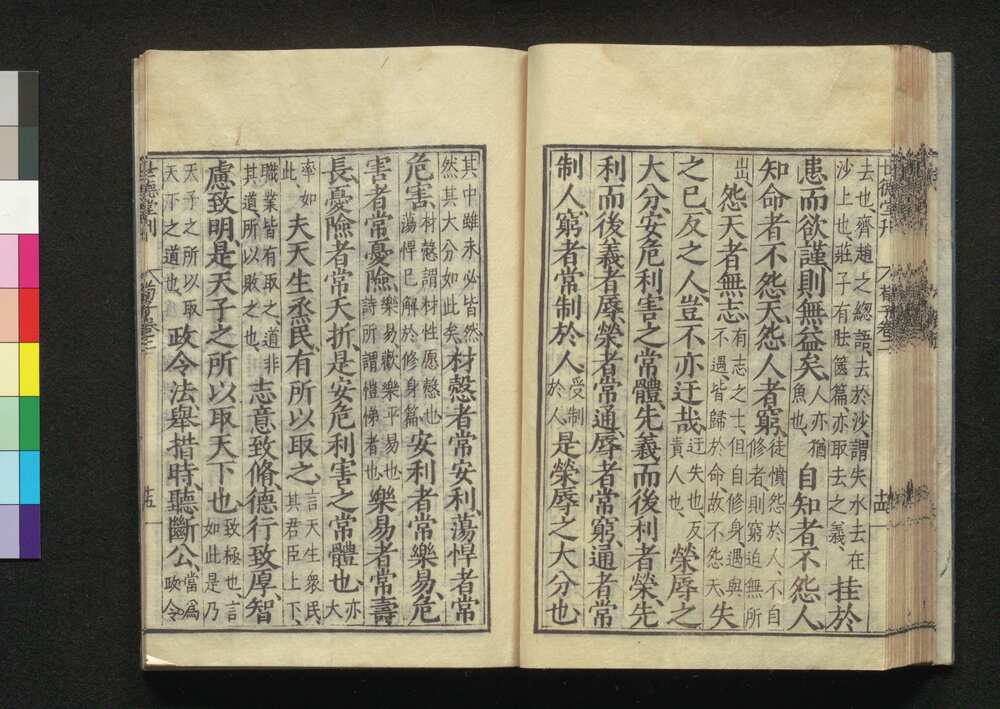 世德堂刊 荀子卷二
去也齊趙之總語去於沙謂失水去在沙上也莊子有胠篋篇亦取去之義挂於
患而欲謹則無益矣人亦猶魚也自知者不怨人
知命者不怨天怨人者窮徒憤怨於人不自修者則窮迫無所
出怨天者無志有志之士但自修身遇與不遇皆歸於命故不怨天失
之己反之人豈不亦迂哉迂失也反責人也榮辱之
大分安危利害之常體先義而後利者榮先
利而後義者辱榮者常通辱者常窮通者常
制人窮者常制於人受制於人是榮辱之大分也
其中雖未必皆然然其大分如此矣材慤者常安利蕩悍者常
危害材慤謂材性愿慤也蕩悍已解於修身篇安利者常樂易危
害者常憂險樂易歡樂平易也詩所謂愷悌者也樂易者常壽
長憂險者常夭折是安危利害之常體也亦大
率如此夫天生烝民有所以取之言天生衆民其君臣上下
職業皆有取之道非其道所以敗之也志意致脩德行致厚智
慮致明是天子之所以取天下也致極也言如此是乃
天子之所以取天下之道也政令法舉措時聽斷公當爲政令
世德堂刊 荀子卷二